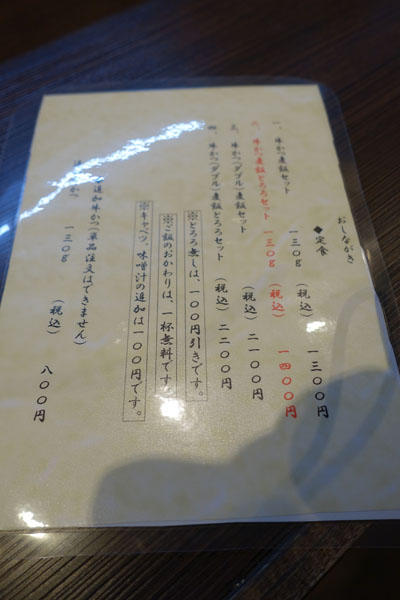 おしながき
◆定食
一、味かつ麦飯セット 一三〇g (税込) 一三〇〇円
二、味かつ麦飯とろろセット 一三〇g (税込) 一四〇〇円
三、味かつ(ダブル)麦飯セット (税込) 二一〇〇円
四、味かつ(ダブル)麦飯とろろセット (税込) 二二〇〇円
※とろろ無しは、一〇〇円引きです。
※ご飯のおかわりは、一杯無料です。
※キャベツ、味噌汁の追加は一〇〇円です。
追加味かつ(単品注文はできません)
かつ 一三〇g (税込) 八〇〇円